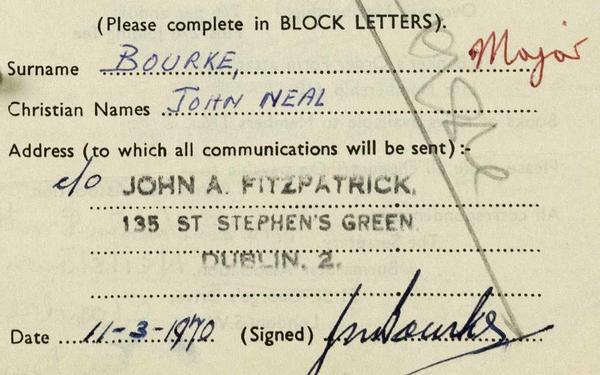 (Please complete in BLOCK LETTERS).
Surname BOURKE, Major
Christian Names JOHN NEAL
Address (to which all communications will be sent):-
c/o JOHN A. FITZPATRICK,
135 ST STEPHEN'S GREEN.
DUBLIN. 2.
Date 11-3-1970 (Signed) JnBourke